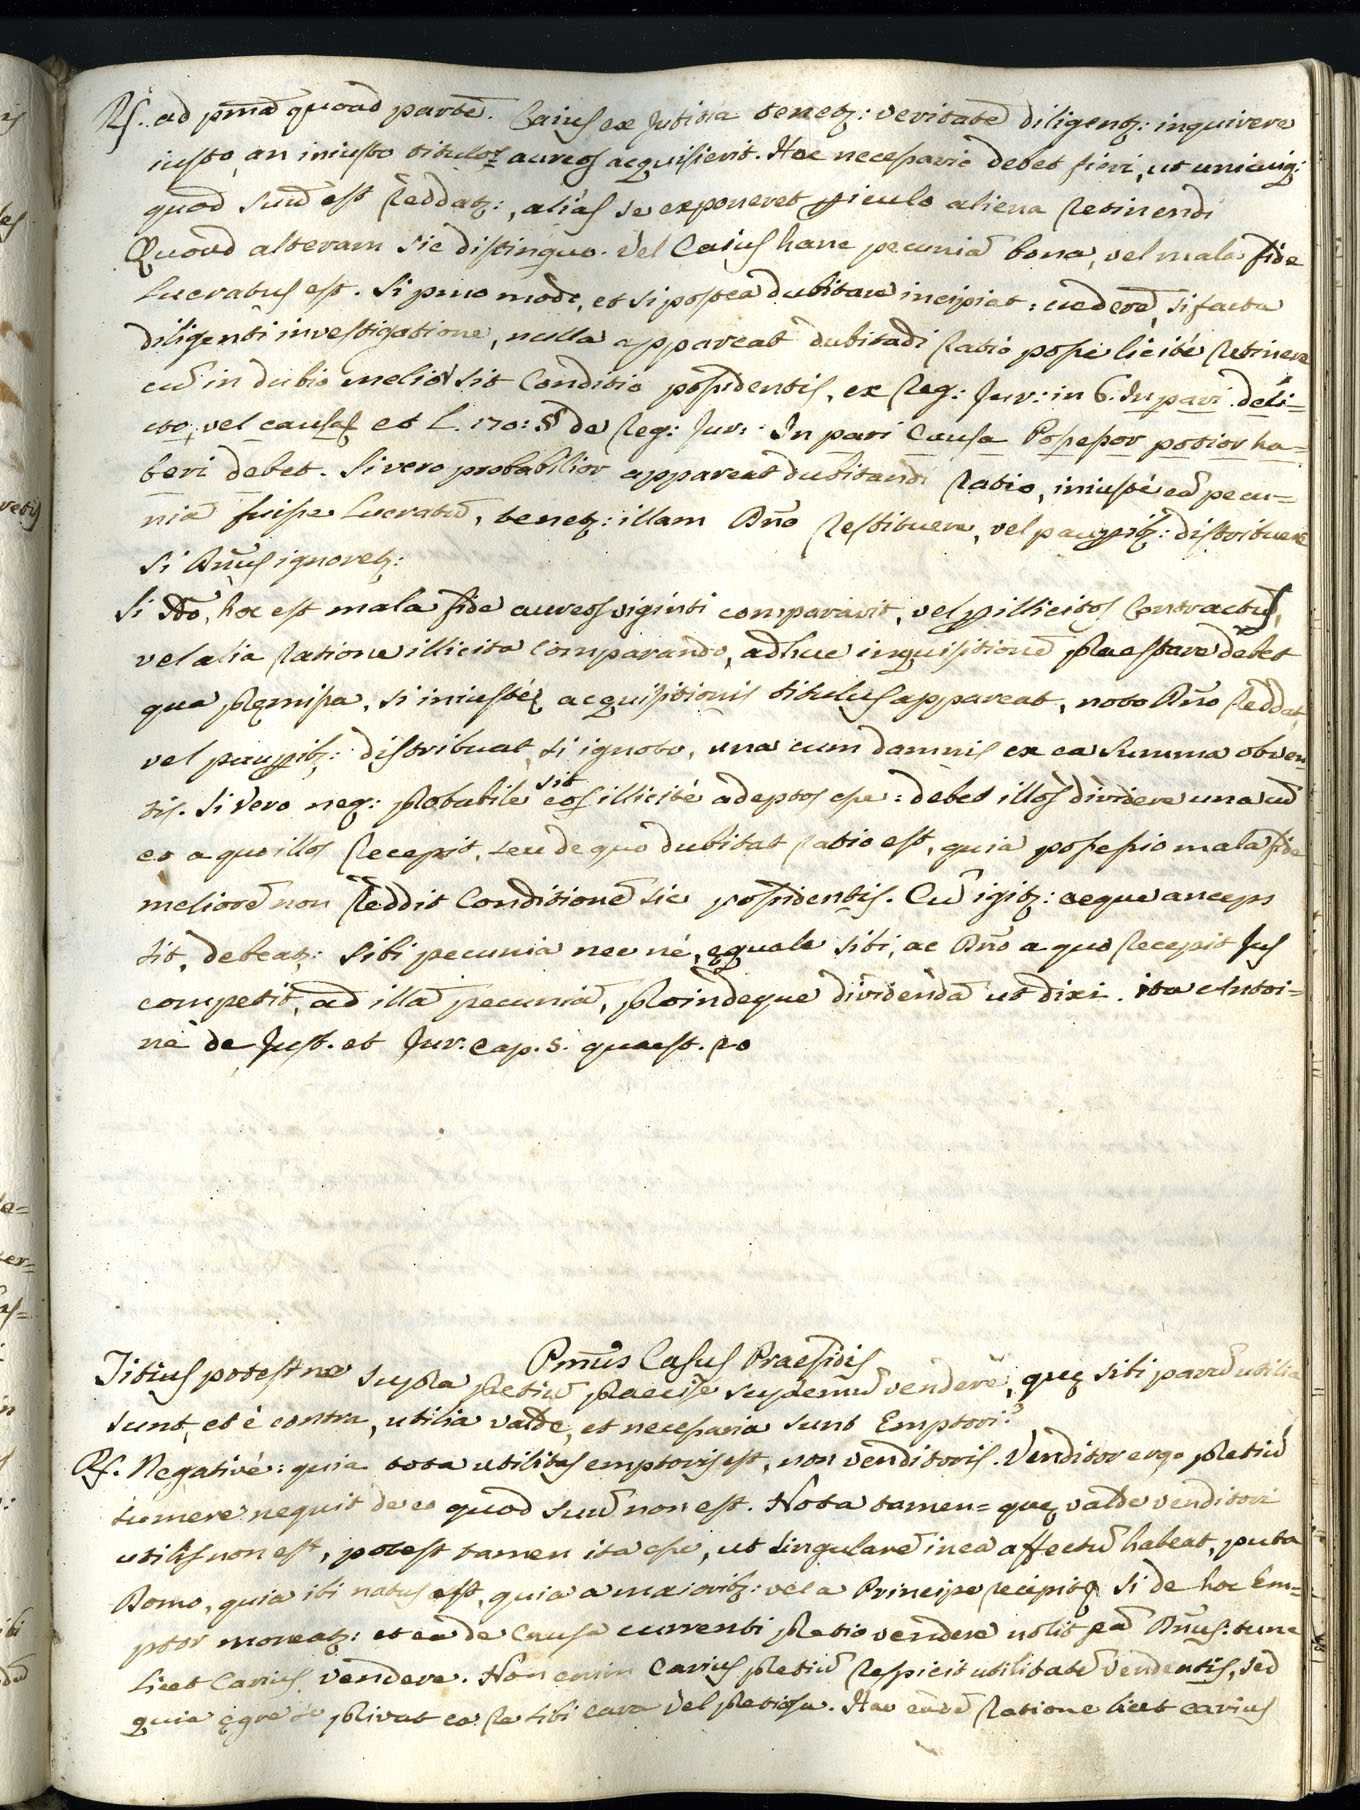 Rſ. ad pm̄ā quoad partē. Caius ex Justitia tenetq: veritatē diligentq: inquirere
iusto, an iniusto titulo aureos acquisierit. Hoc necessario debet fieri, ut unicuiq:
quod suū est reddatq:, aliàs se exponeret piculo aliena retinendi
Quoad alteram sic distinguo. Vel Caius hanc pecuniā bona, vel mala fide
Lucratus est. Si pmo modo, et si postea dubitare incipiat: cederē, si facta
diligenti investigatione, nulla appareat dubitādi ratio posse licitè retinere
cū in dubio melior sit Conditio possidentis, ex Reg: Jur: in 6. In pari deli=
cto, vel causa et L. 170: § de Reg: Jur: In pari Causa Possessor potior ha=
beri debet. Si vero probabilior appareat dubitandi ratio, iniustè eā pecu=
niā fuisse Lucratū, tenetq: illam Dn̄o restituere, vel paupibq: distribuere
si Dn̄us ignoretq:
Si 2do, hoc est mala fide aureos viginti comparavit, vel p illicitos Contractus,
vel alia ratione illicita comparando, adhuc inquisitionē praestare debet
qua praemissa, si iniustae acquisitionis titulus appareat, noto Dn̄o reddat,
vel paupibq: distribuat, si ignoto, una cum damnis ex ea Summa obven=
tis. Si vero neq: probabile sit eos illicitè adeptos esse: debet illos dividere una cū
eo a quo illos recepit, seu de quo dubitat ratio est, quia possessio mala fide
meliorē non reddit Conditionē sic possidentis. Cū igitq: aeque anceps
sit, debeatq: sibi pecunia nec nè, ęquale sibi, ac Dn̄o a quo recepit Jus
competit, ad illā pecuniā, proindeque dividendā ut dixi. ita Antoi=
ne de Just. et Jur. cap. 5. quaest. 20
Pm̄us Casus Praesidis
Titius potest ne supra pretiū praecisè supremū vendere, quę sibi parū utilia
sunt, et è contra, utilia valde, et necessaria sunt Emptori?
Rſ. Negativè: quia tota utilitas emptoris est, non venditoris. Venditor ergo pretiū
sumere nequit de eo quod suū non est. Nota tamen= quę valde venditori
utilis non est, potest tamen ita esse, ut singularē in eā affectū habeat, puta
Domo, quia ibi natus est, quia a maioribq: vel a Principe recepit si de hoc Em=
ptor moneatq: et eā de Causa currenti pretio vendere nolit eā Dn̄us: tunc
licet Carius vendere. Non enim Carius pretiū respicit utilitatē vendentis, sed
quia ęgre se privat eâ re sibi cara vel pretiosa. Hac eādē ratione licet carius